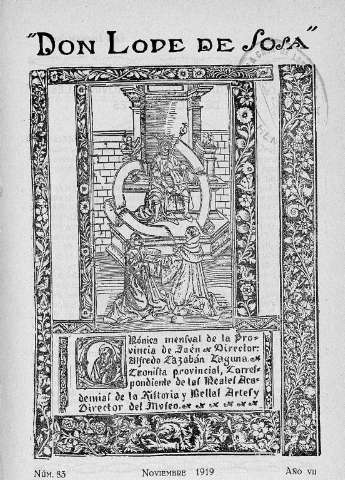 "DON LOPE DE SOSA"
Crónica mensual de la Pro-
vincia de Jaén Director:
Alfredo Cazabán Laguna.
Cronista provincial, Corres-
pondiente de las Reales Aca-
demias de la Historia y Bellas Artes y
Director del Museo.
NÚM. 83 NOVIEMBRE 1919 AÑO VII